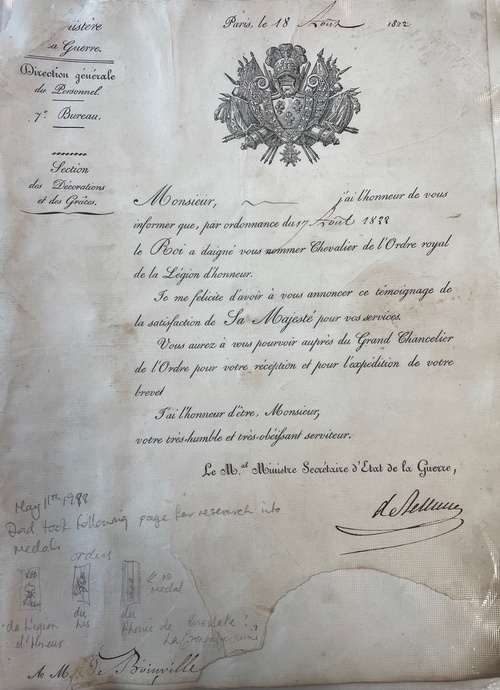 istère
a Guerre.
Direction générale
du Personnel.
7e Bureau.
Section
des Decorations
et des Grâces.
Paris, le 18 Août 1822
Monsieur, j'ai l'honneur de vous
informer que, par ordonnance du 17 Août 1822
le Roi a daigné vous nommer Chevalier de l'Ordre royal
de la Légion d'honneur.
Je me felicite d'avoir à vous annoncer ce témoignage de
la satisfaction de Sa Majesté pour vos services.
Vous aurez à vous pourvoir auprès du Grand Chancelier
de l'Ordre pour votre réception et pour l'expédition de votre
brevet
J'ai l'honneur d'être, Monsieur,
votre très-humble et très-obéissant serviteur.
Le M.al Ministre Secrétaire d'Etat de la Guerre,
May 11th 1988
Dad took following page for research into
medals
orders
no
medal
Red
de Legion
d'Honeur
du
Lis
du
A M. De Boinville